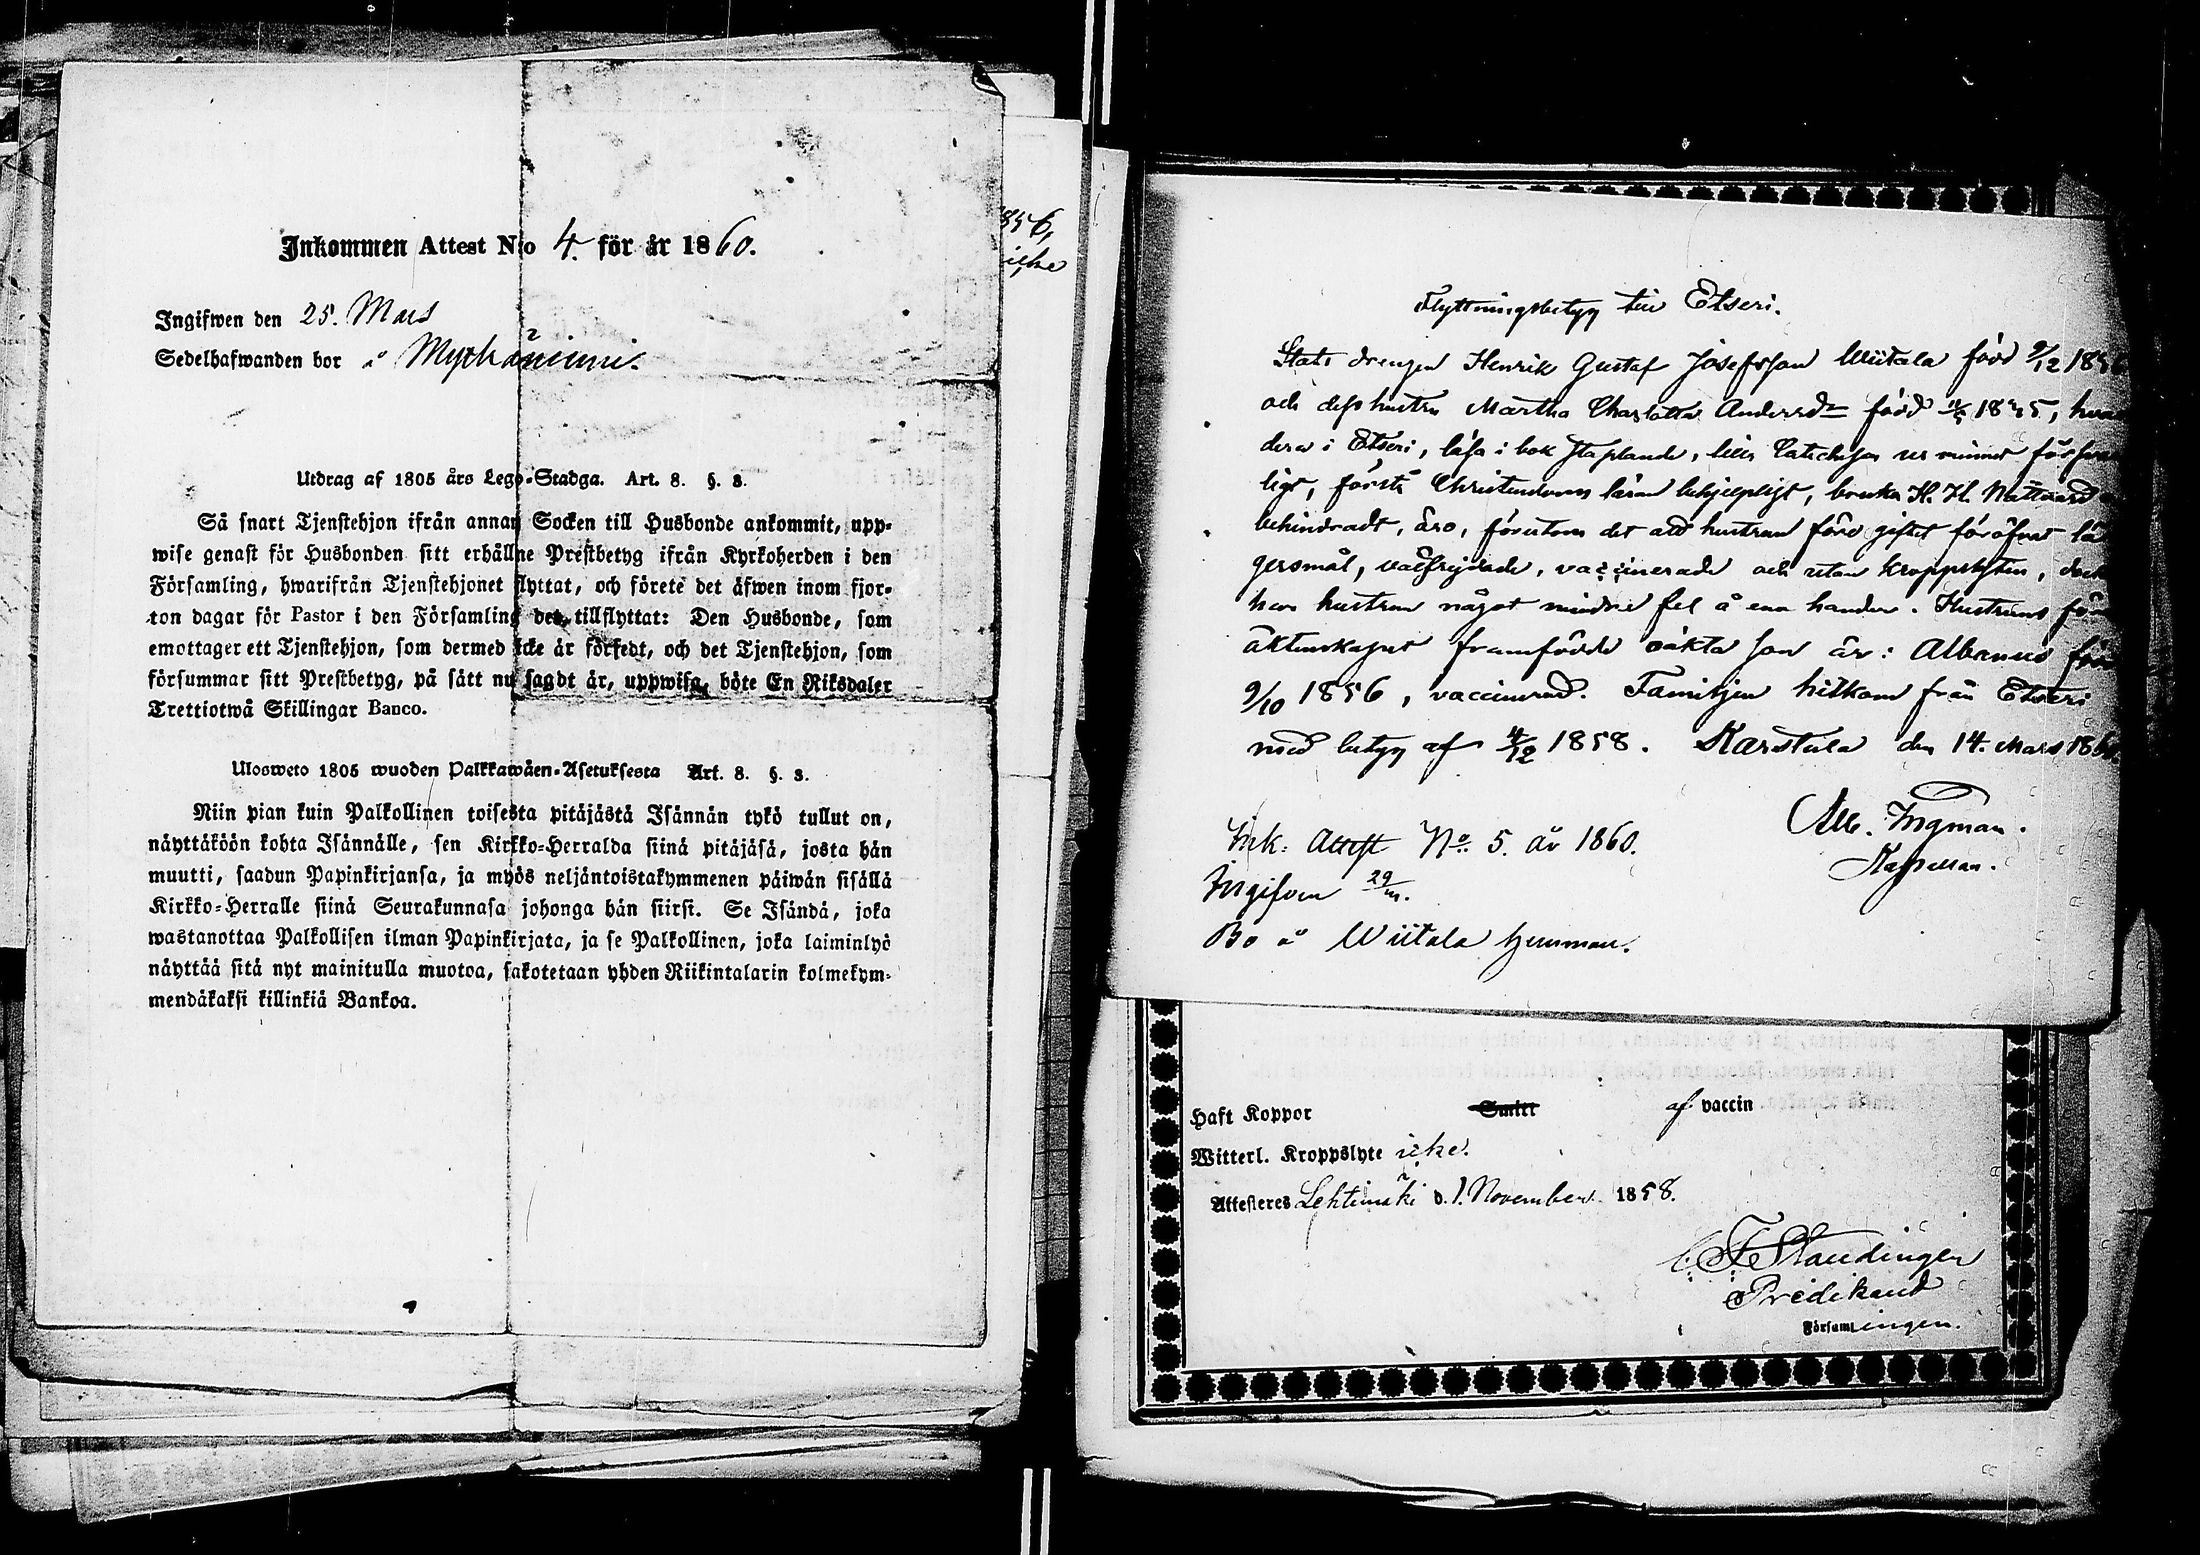 Inkommen Attest N:o 4. för år 1860.
Ingifwen den 25. Mars
Sedelhafwanden bor å Myllyniemi.
Utdrag af 1805 års Lego-Stadga. Art. 8. §. 3.
Så snart Tjenstehjon ifrån annan Socken till Husbonde ankommit, upp-
wise genast för Husbonden sitt erhållne Prestbetyg ifrån Kyrkoherden i den
Församling, hwarifrån Tjenstehjonet flyttat, och förete det äfwen inom fjor-
ton dagar för Pastor i den Församling det tillflyttat: Den Husbonde, som
emottager ett Tjenstehjon, som dermed icke är försedt, och det Tjenstehjon, som
försummar sitt Prestbetyg, på sätt nu sagdt är, uppwisa, böte En Riksdaler
Trettiotwå Skillingar Banco.
Ulosweto 1805 wuoden Palkkawäen-Asetuksesta Art. 8. §. 3.
Niin pian kuin Palkollinen toisesta pitäjästä Isännän tykö tullut on,
näyttäköön kohta Isännälle, sen Kirkko-Herralda siinä pitäjäsä, josta hän
muutti, saadun Papinkirjansa, ja myös neljäntoistakymmenen päiwän sisällä
Kirkko-Herralle siinä Seurakunnasa johonga hän siirsi. Se Isändä, joka
wastanottaa Palkollisen ilman Papinkirjata, ja se Palkollinen, joka laiminlyö
näyttää sitä nyt mainitulla muotoa, sakotetaan yhden Riikintalarin kolmekym-
mendäkaksi killinkiä Bankoa.
1856,
icke
Flyttningsbetyg till Etseri.
Stats drengen Henrik Gustaf Josefsson Wiitala född 9/12 18
och dess hustru Martha Charlotta Andersdr född 1825,
dera i Etseri, läsa i bok staplande, lilla Catechesen ur minnet
ligt, förstå Christendoms läran behjelpligt, bruka H. H. Nattvard
behindradt, äro, förutom det att hustrun före giftet föröfvat lä
gersmål, välfrejdade, vaccinerade och utan kroppslyten, dock
har hustrun något mindre fel å ena handen. Hustruns för
äktenskapet framfödde oäkta son är: Albanus född
9/10 1856, vaccinerad. Familjen hitkom från Etseri
med betyg af 4/12 1858. Karstula den 14. Mars 1860.
Alb. Ingman.
Kapellan.
Ink: Attest No. 5. år 1860.
Ingifven 29/m.
Bo å Wiitala hemman.
Haft Koppor Smitt af vaccin
Witterl. Kroppslyte icke.
Attesteres Lehtimäki d. 1. November 1858.
C. F. Staudinger
Predikant
Församlingen.